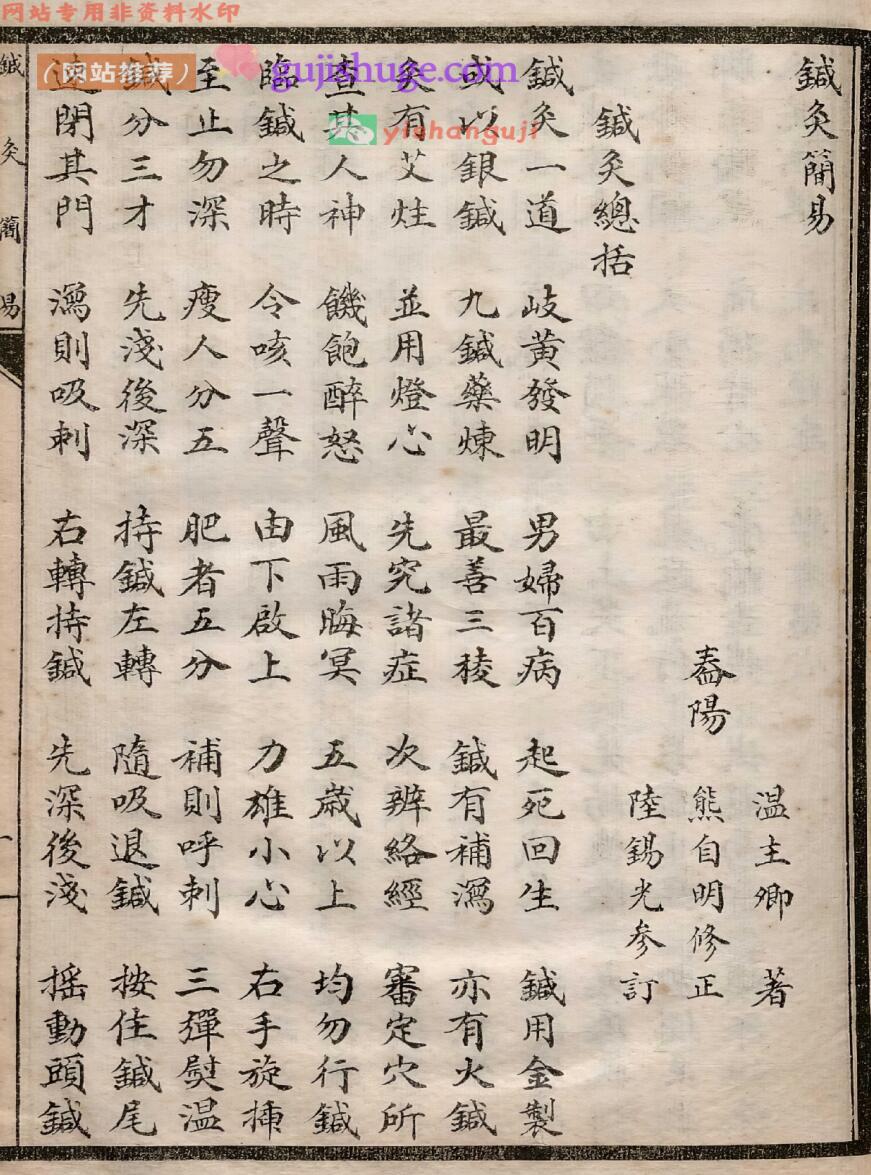 网站专用非资料水印
（网站推荐）
gujishuge.com
yishanguji
鍼灸簡易
温主卿 著
熊自明修正
陽
陸錫光參訂
鍼灸總括
鍼灸一道 岐黃發明 男婦百病 起死回生 鍼用金製
或以銀鍼 九鍼藥煉 最善三稜 鍼有補瀉 亦有火鍼
灸有艾炷 並用燈心 先究諸症 次辨絡經 審定穴所
查其人神 饑飽醉怒 風雨晦冥 五歲以上 均勿行鍼
臨鍼之時 令咳一聲 由下啟上 力雄小心 右手旋揷
至止勿深 瘦人分五 肥者五分 補則呼刺 三彈熨温
鍼分三才 先淺後深 持鍼左轉 隨吸退鍼 按住鍼尾
速閉其門 瀉則吸刺 右轉持鍼 先深後淺 摇動頭鍼
鍼灸簡易
一